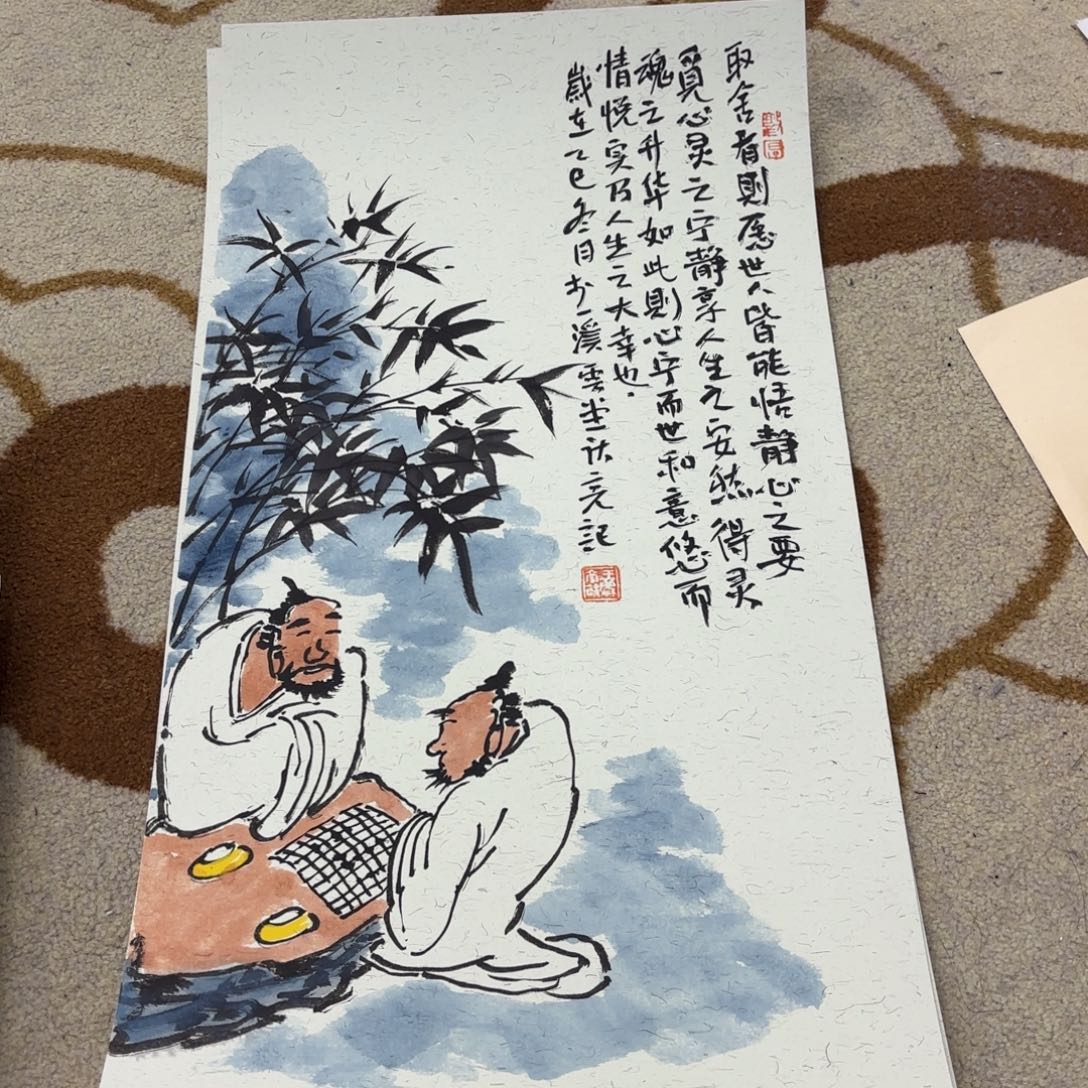 取舍者则愿世人皆能悟静心之要
觅心灵之宁静享人生之安然得灵
魂之升华如此则心宁而世和意悠而
情悦实乃人生之大幸也
岁在乙巳冬月于溪雲堂沃亮記